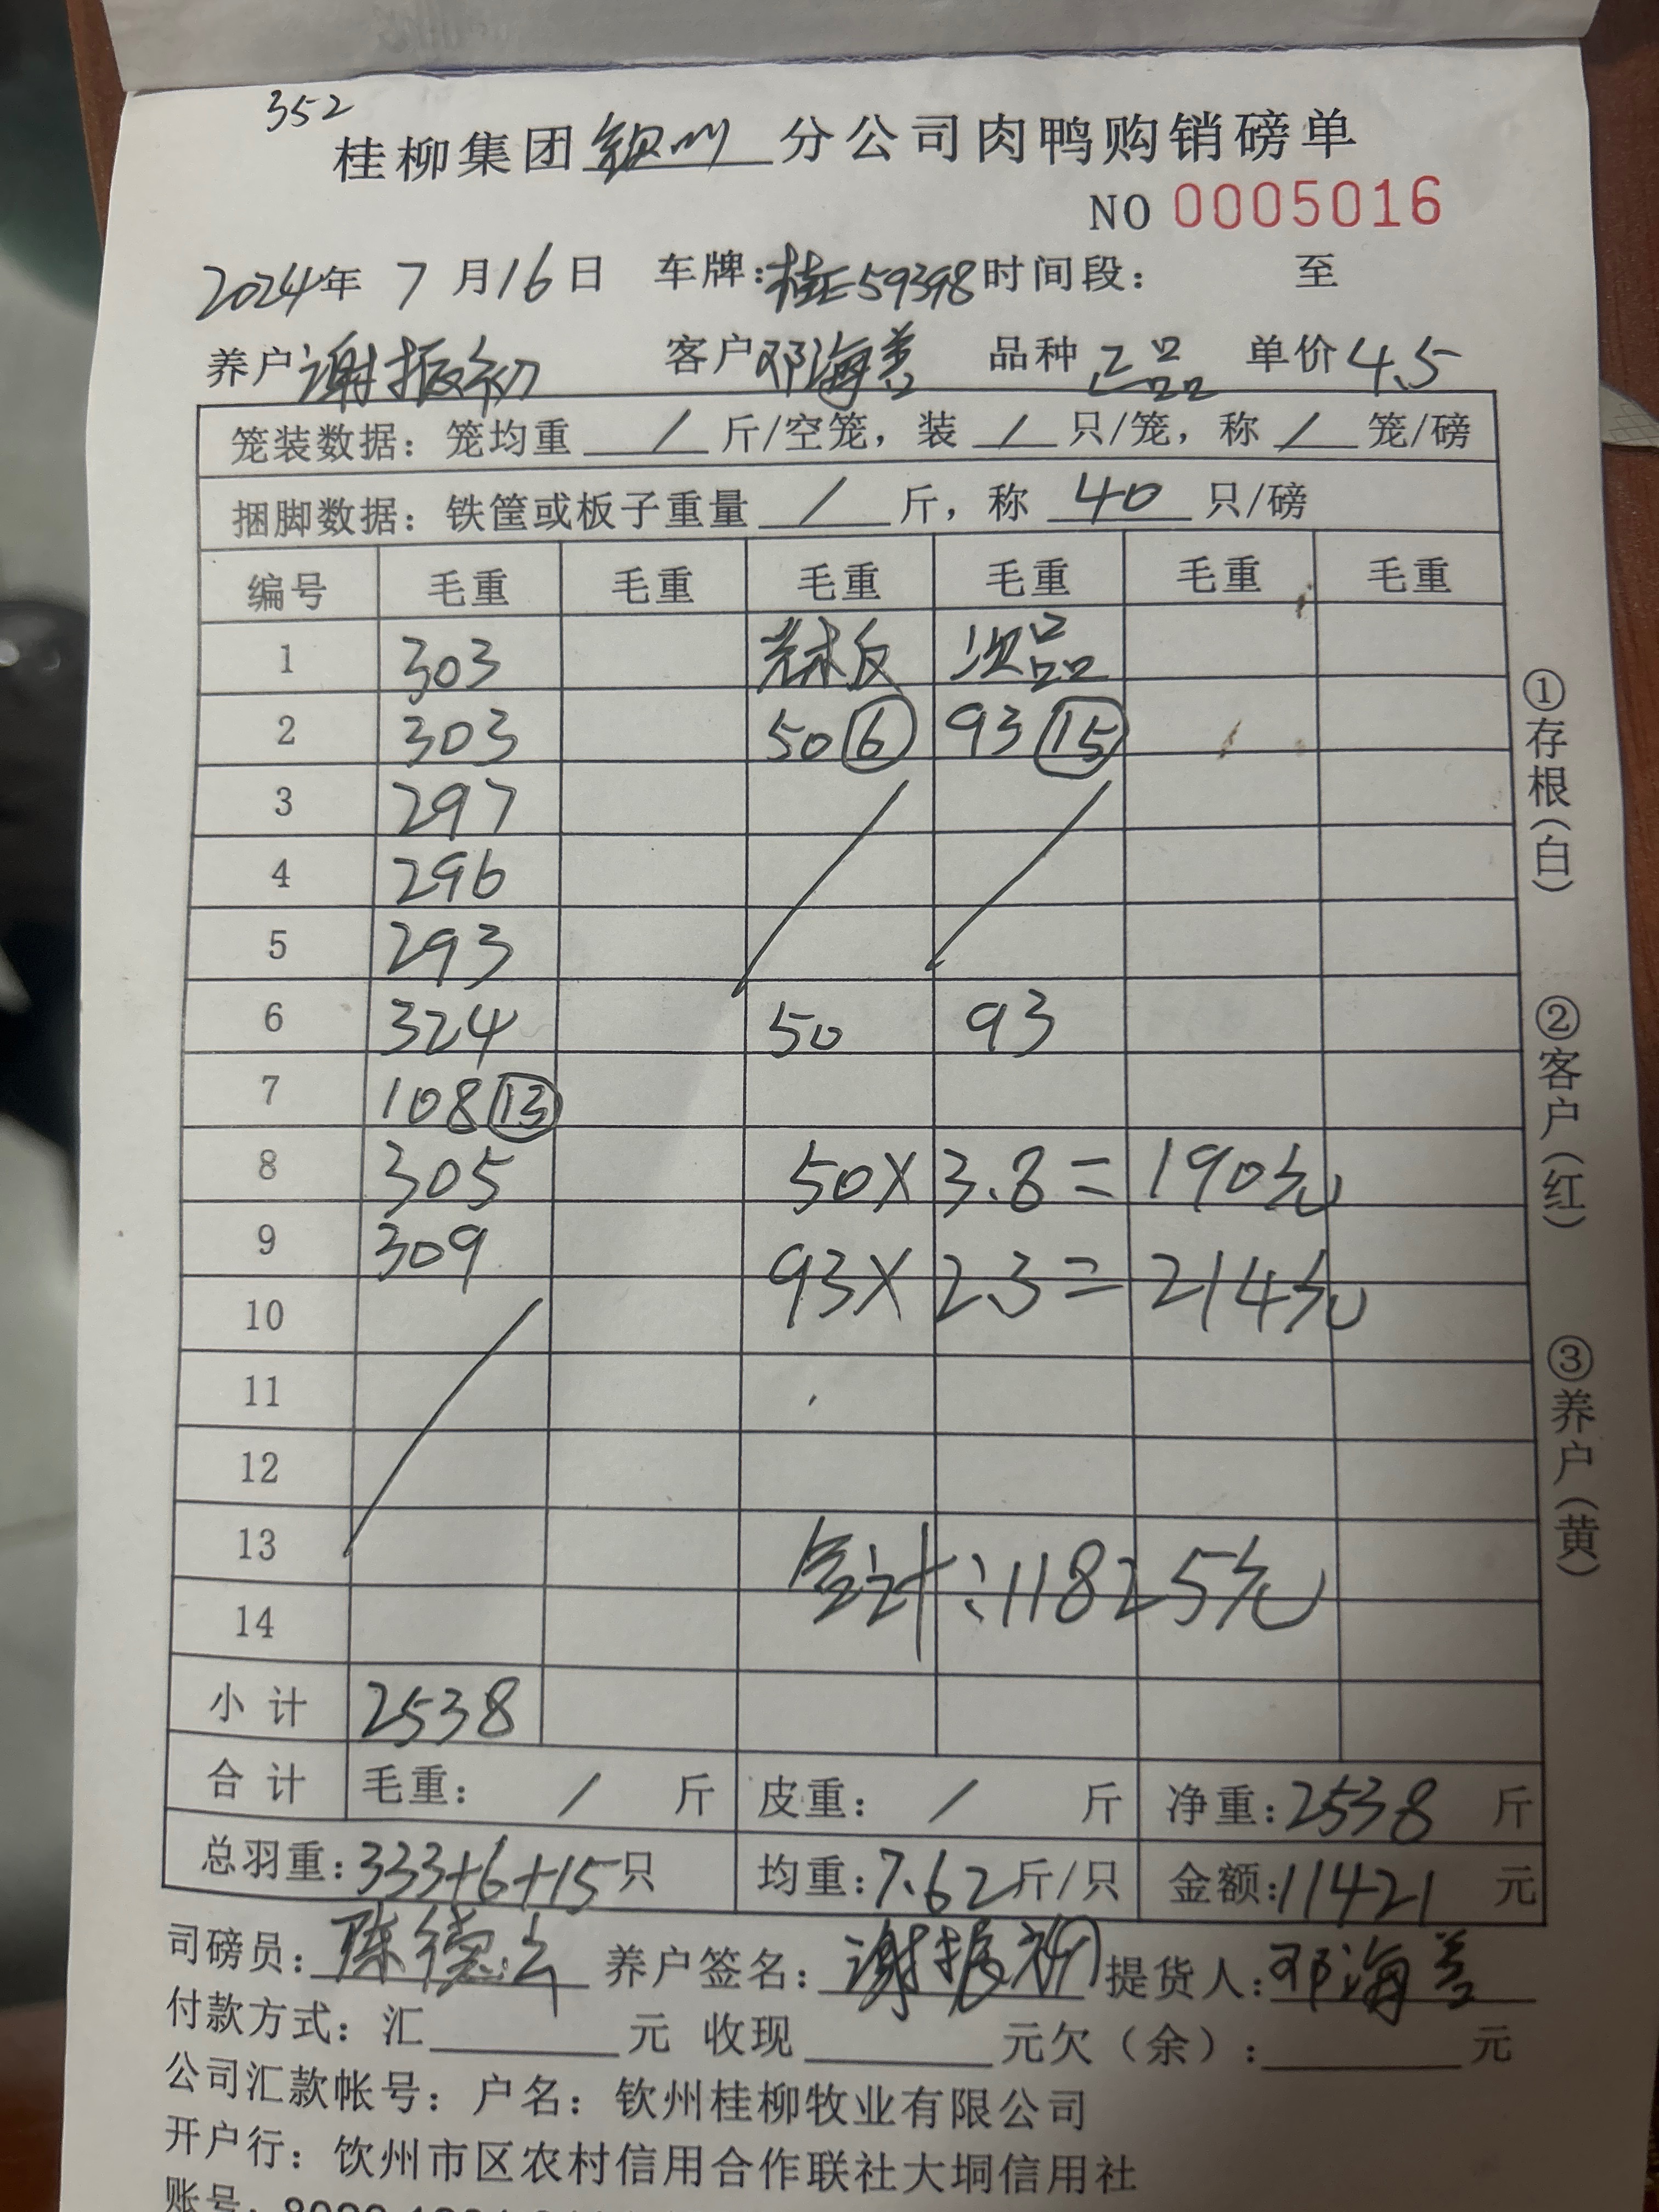 352
桂柳集团 钦州 分公司肉鸭购销磅单
NO 0005016
2024年 7 月 16 日 车牌:桂E59398 时间段: 至
养户 谢振初 客户 邓海善 品种 正品 单价 4.5
笼装数据: 笼均重 / 斤/空笼, 装 / 只/笼, 称 / 笼/磅
捆脚数据: 铁筐或板子重量 / 斤, 称 40 只/磅
编号 毛重 毛重 毛重 毛重 毛重 毛重
1 303 次品
2 303 50 ⑥ 93 ⑮
3 297
4 296
5 293
6 324 50 93
7 108 ⑬
8 305 50×3.8=190元
9 309 93×2.3=214元
10
11
12
13
合计:11825元
14
小计 2538
合计 毛重: / 斤 皮重: / 斤 净重:2538 斤
总羽重:333+6+15只 均重:7.62斤/只 金额:11421 元
司磅员: 陈德 养户签名: 谢振初 提货人: 邓海善
付款方式: 汇 元 收现 元欠(余): 元
公司汇款帐号: 户名: 钦州桂柳牧业有限公司
开户行: 钦州市区农村信用合作联社大垌信用社
账号:
①存根(白) ②客户(红) ③养户(黄)